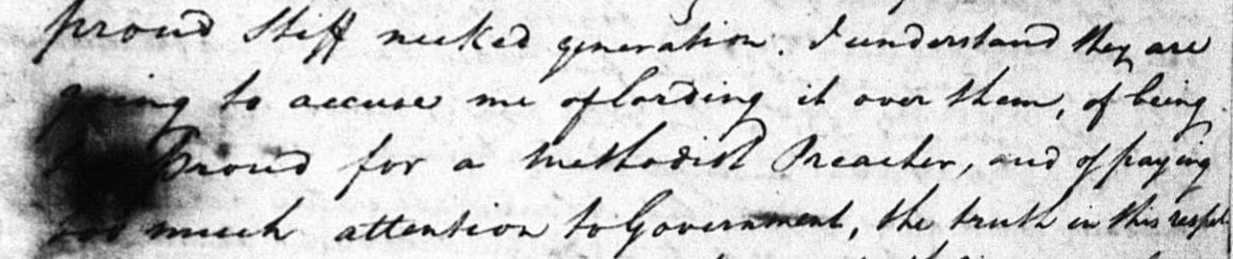 proud stiff necked generation. I understand they are
going to accuse me of lording it over them, of being
too proud for a Methodist Preacher, and of paying
too much attention to Government, the truth in this respect